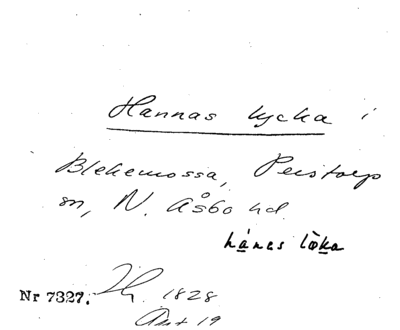 Hannas lycka i
Blekemossa, Perstorps
sn, N. Åsbo hd.
hánas lǫ̀ka
Nr 7327. Jh. 1828
Akt 19